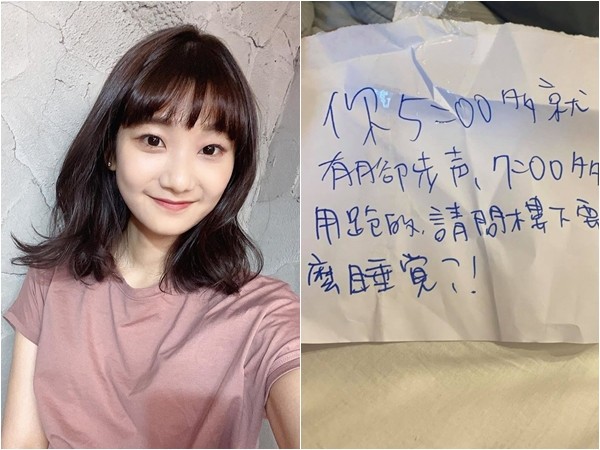 你5:00多就
有腳步声、7:00多
用跑的，請問樓下要
麼睡覺?!